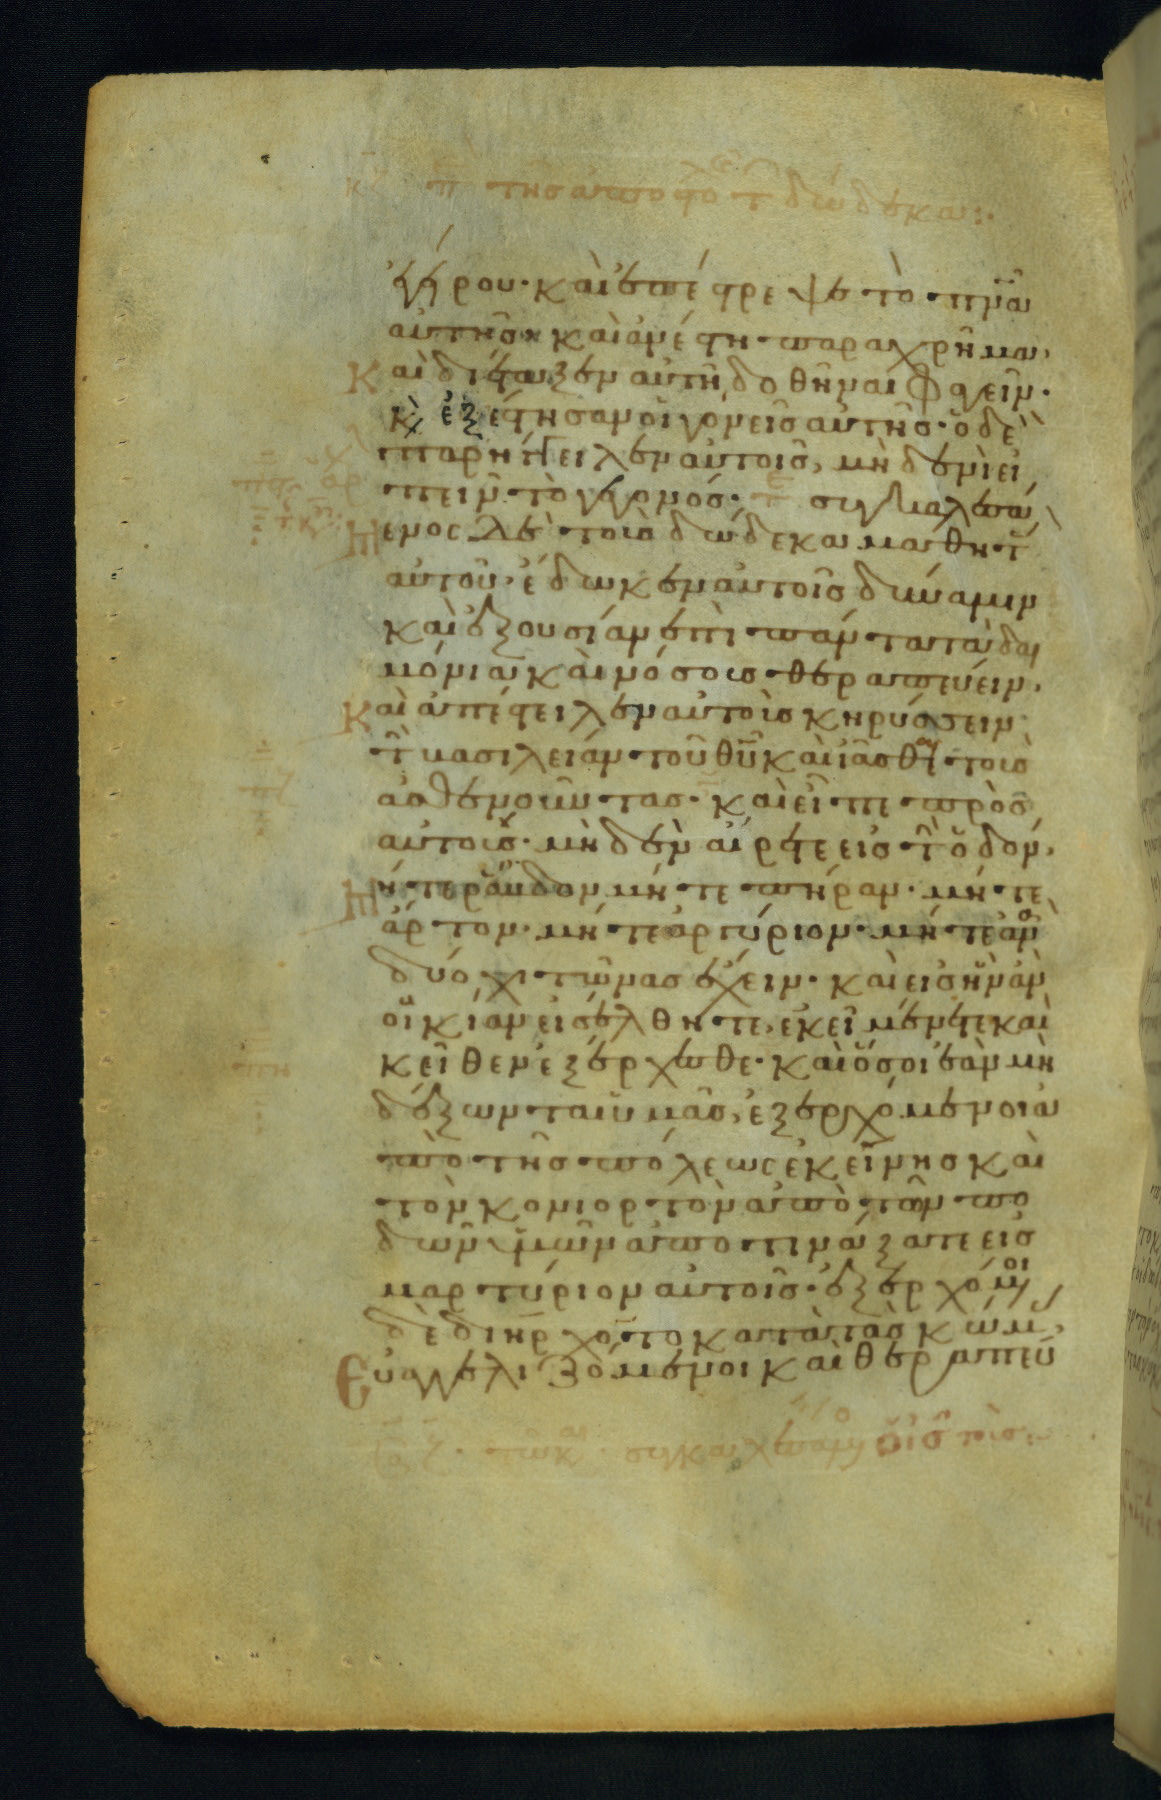 κγ π της αποστολ τ δώδεκα:·
ἐγείρου· καὶ ἐπέστρεψε τὸ πνα
αὐτῆς· καὶ ἀνέστη παραχρῆμα·
Καὶ διέταξεν αὐτῆ δοθῆναι φαγεῖν·
κ ἐξέστησαν οἱ γονεῖς αὐτῆς· ὁ δὲ
παρήγγειλεν αὐτοῖς, μὴδενὶ εἰ
πεῖν τὸ γεγονός· συγκαλεσά
μενος δὲ τοὺς δώδεκα μαθητ
αὐτοῦ· ἔδωκεν αὐτοῖς δύναμιν
καὶ ἐξουσίαν ἐπὶ πάντα τὰ δαι
μόνια καὶ νόσους θεραπεύειν·
Καὶ ἀπέστειλεν αὐτοὺς κηρύσσειν
τ βασιλείαν τοῦ θυ καὶ ἰᾶσθαι τοὺς
ἀσθενοῦντας· καὶ εἶπε πρὸς
αὐτούς· μηδὲν αἴρετε εἰς τ ὁδόν·
Μήτε ράβδον μήτε πήραν· μήτε
ἄρτον· μήτε ἀργύριον· μήτε ἀνὰ
δύο χιτῶνας ἔχειν· καὶ εἰς ἣν ἂν
οἰκίαν εἰσέλθητε, ἐκεῖ μένετε καὶ
κεῖθεν ἐξέρχεσθε· καὶ ὅσοι ἐὰν μὴ
δέξωνται ὑμᾶς, ἐξερχόμενοι ἀ
πὸ τῆς πόλεως ἐκείνης καὶ
τὸν κονιορτὸν ἀπὸ τῶν πο
δῶν ὑμῶν ἀποτινάξατε εἰς
μαρτύριον αὐτοῖς· ἐξερχόμενοι
δὲ διήρχοντο κατὰ τὰς κώμ
Εὐαγγελιζόμενοι καὶ θεραπεύ